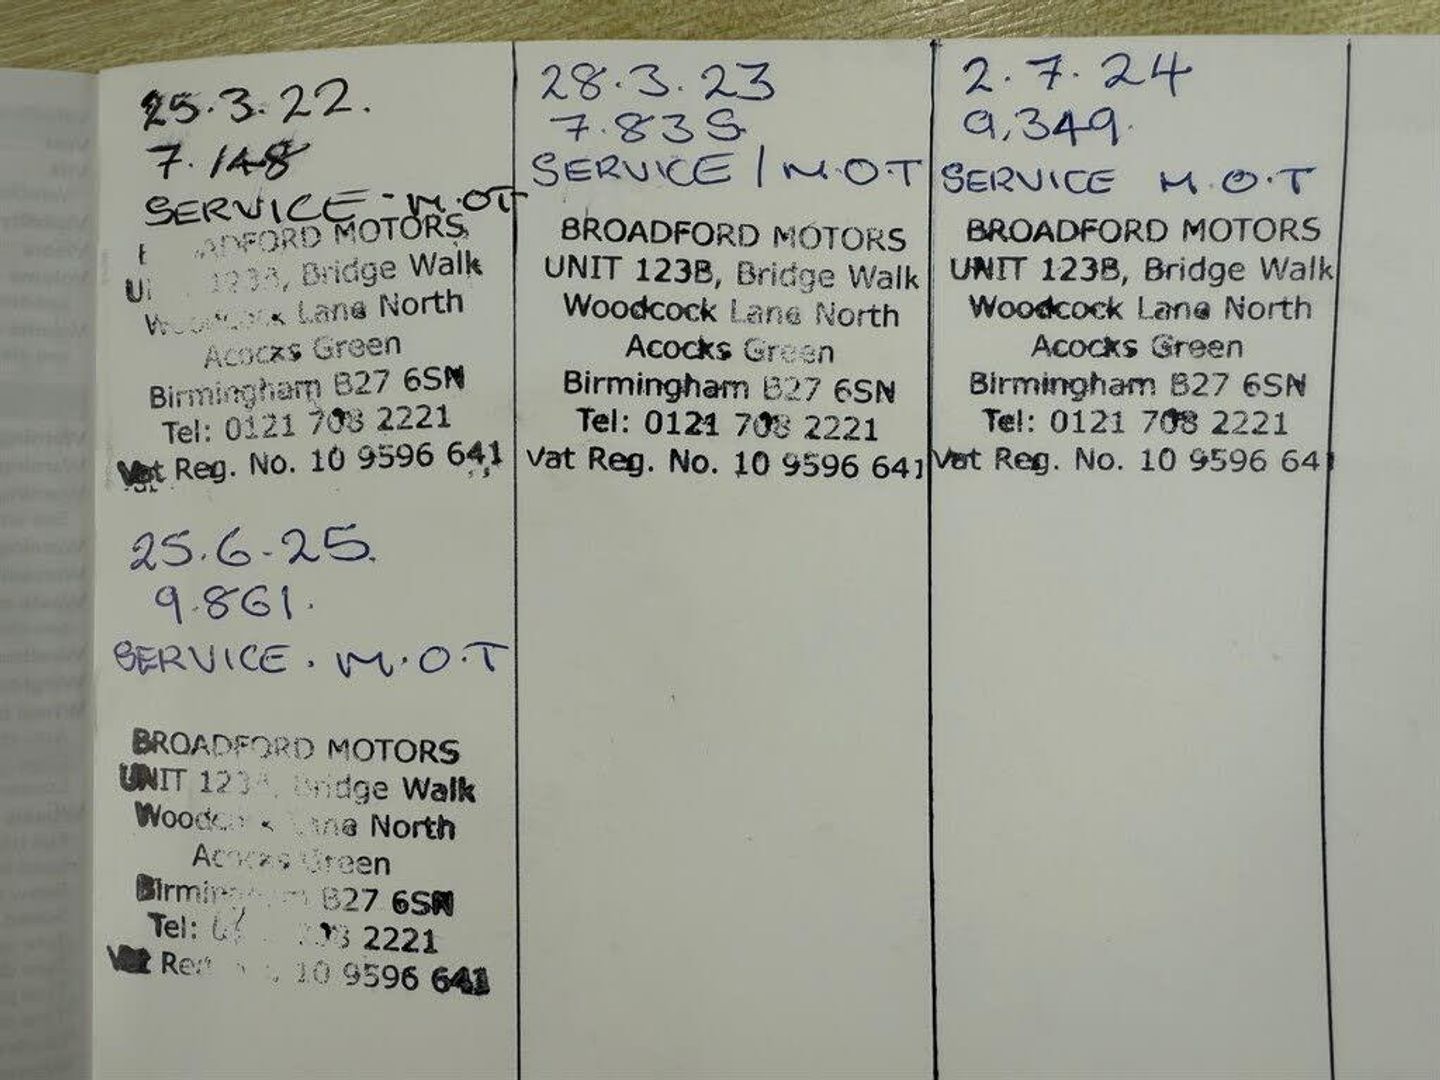 25.3.22.
7.148
SERVICE - M.OT
ADFORD MOTORS
123B, Bridge Walk
Woodcock Lane North
Acocks Green
Birmingham B27 6SN
Tel: 0121 708 2221
Vat Reg. No. 10 9596 641
28.3.23
7.835
SERVICE / M.O.T
BROADFORD MOTORS
UNIT 123B, Bridge Walk
Woodcock Lane North
Acocks Green
Birmingham B27 6SN
Tel: 0121 708 2221
Vat Reg. No. 10 9596 641
2.7.24
9,349.
SERVICE M.O.T
BROADFORD MOTORS
UNIT 123B, Bridge Walk
Woodcock Lane North
Acocks Green
Birmingham B27 6SN
Tel: 0121 708 2221
Vat Reg. No. 10 9596 641
25.6-25.
9.861.
SERVICE . M.O.T
BROADFORD MOTORS
UNIT Bridge Walk
Lane North
Acocks Green
Birmingham B27 6SN
Tel: 708 2221
Vat 10 9596 641